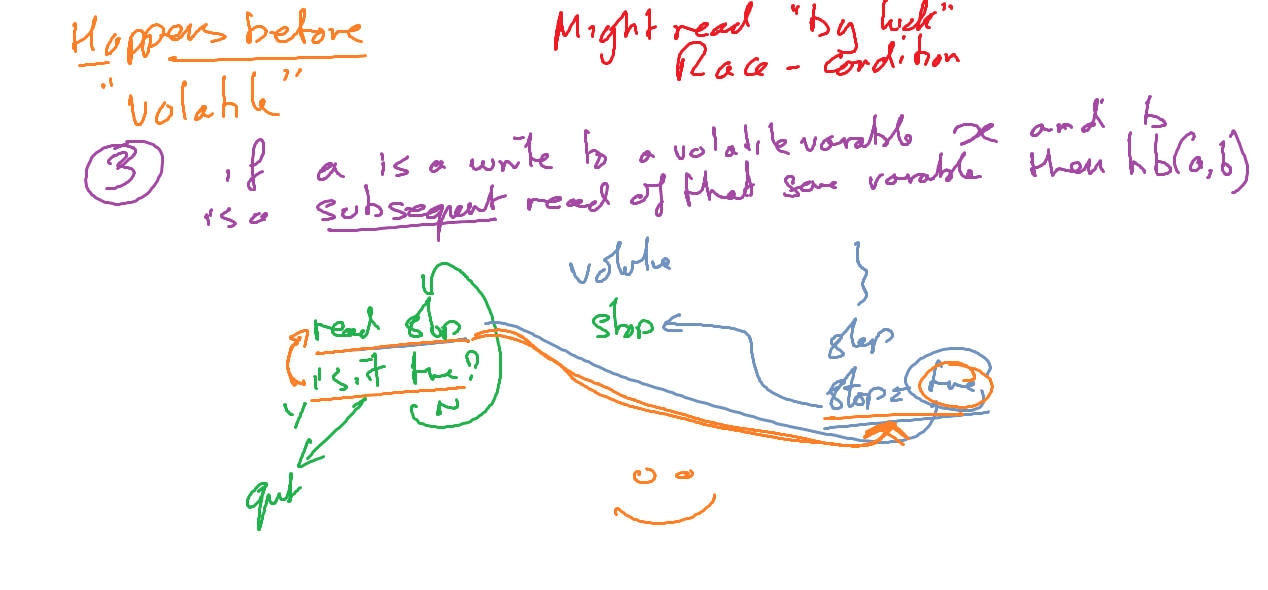 Happens before
"volatile"
Might read "by luck"
Race - condition
3
if a is a write to a volatile variable x and b
is a subsequent read of that same variable then hb(a,b)
volatile
stop
read stop
is it true?
Y
N
quit
sleep
stop = true;